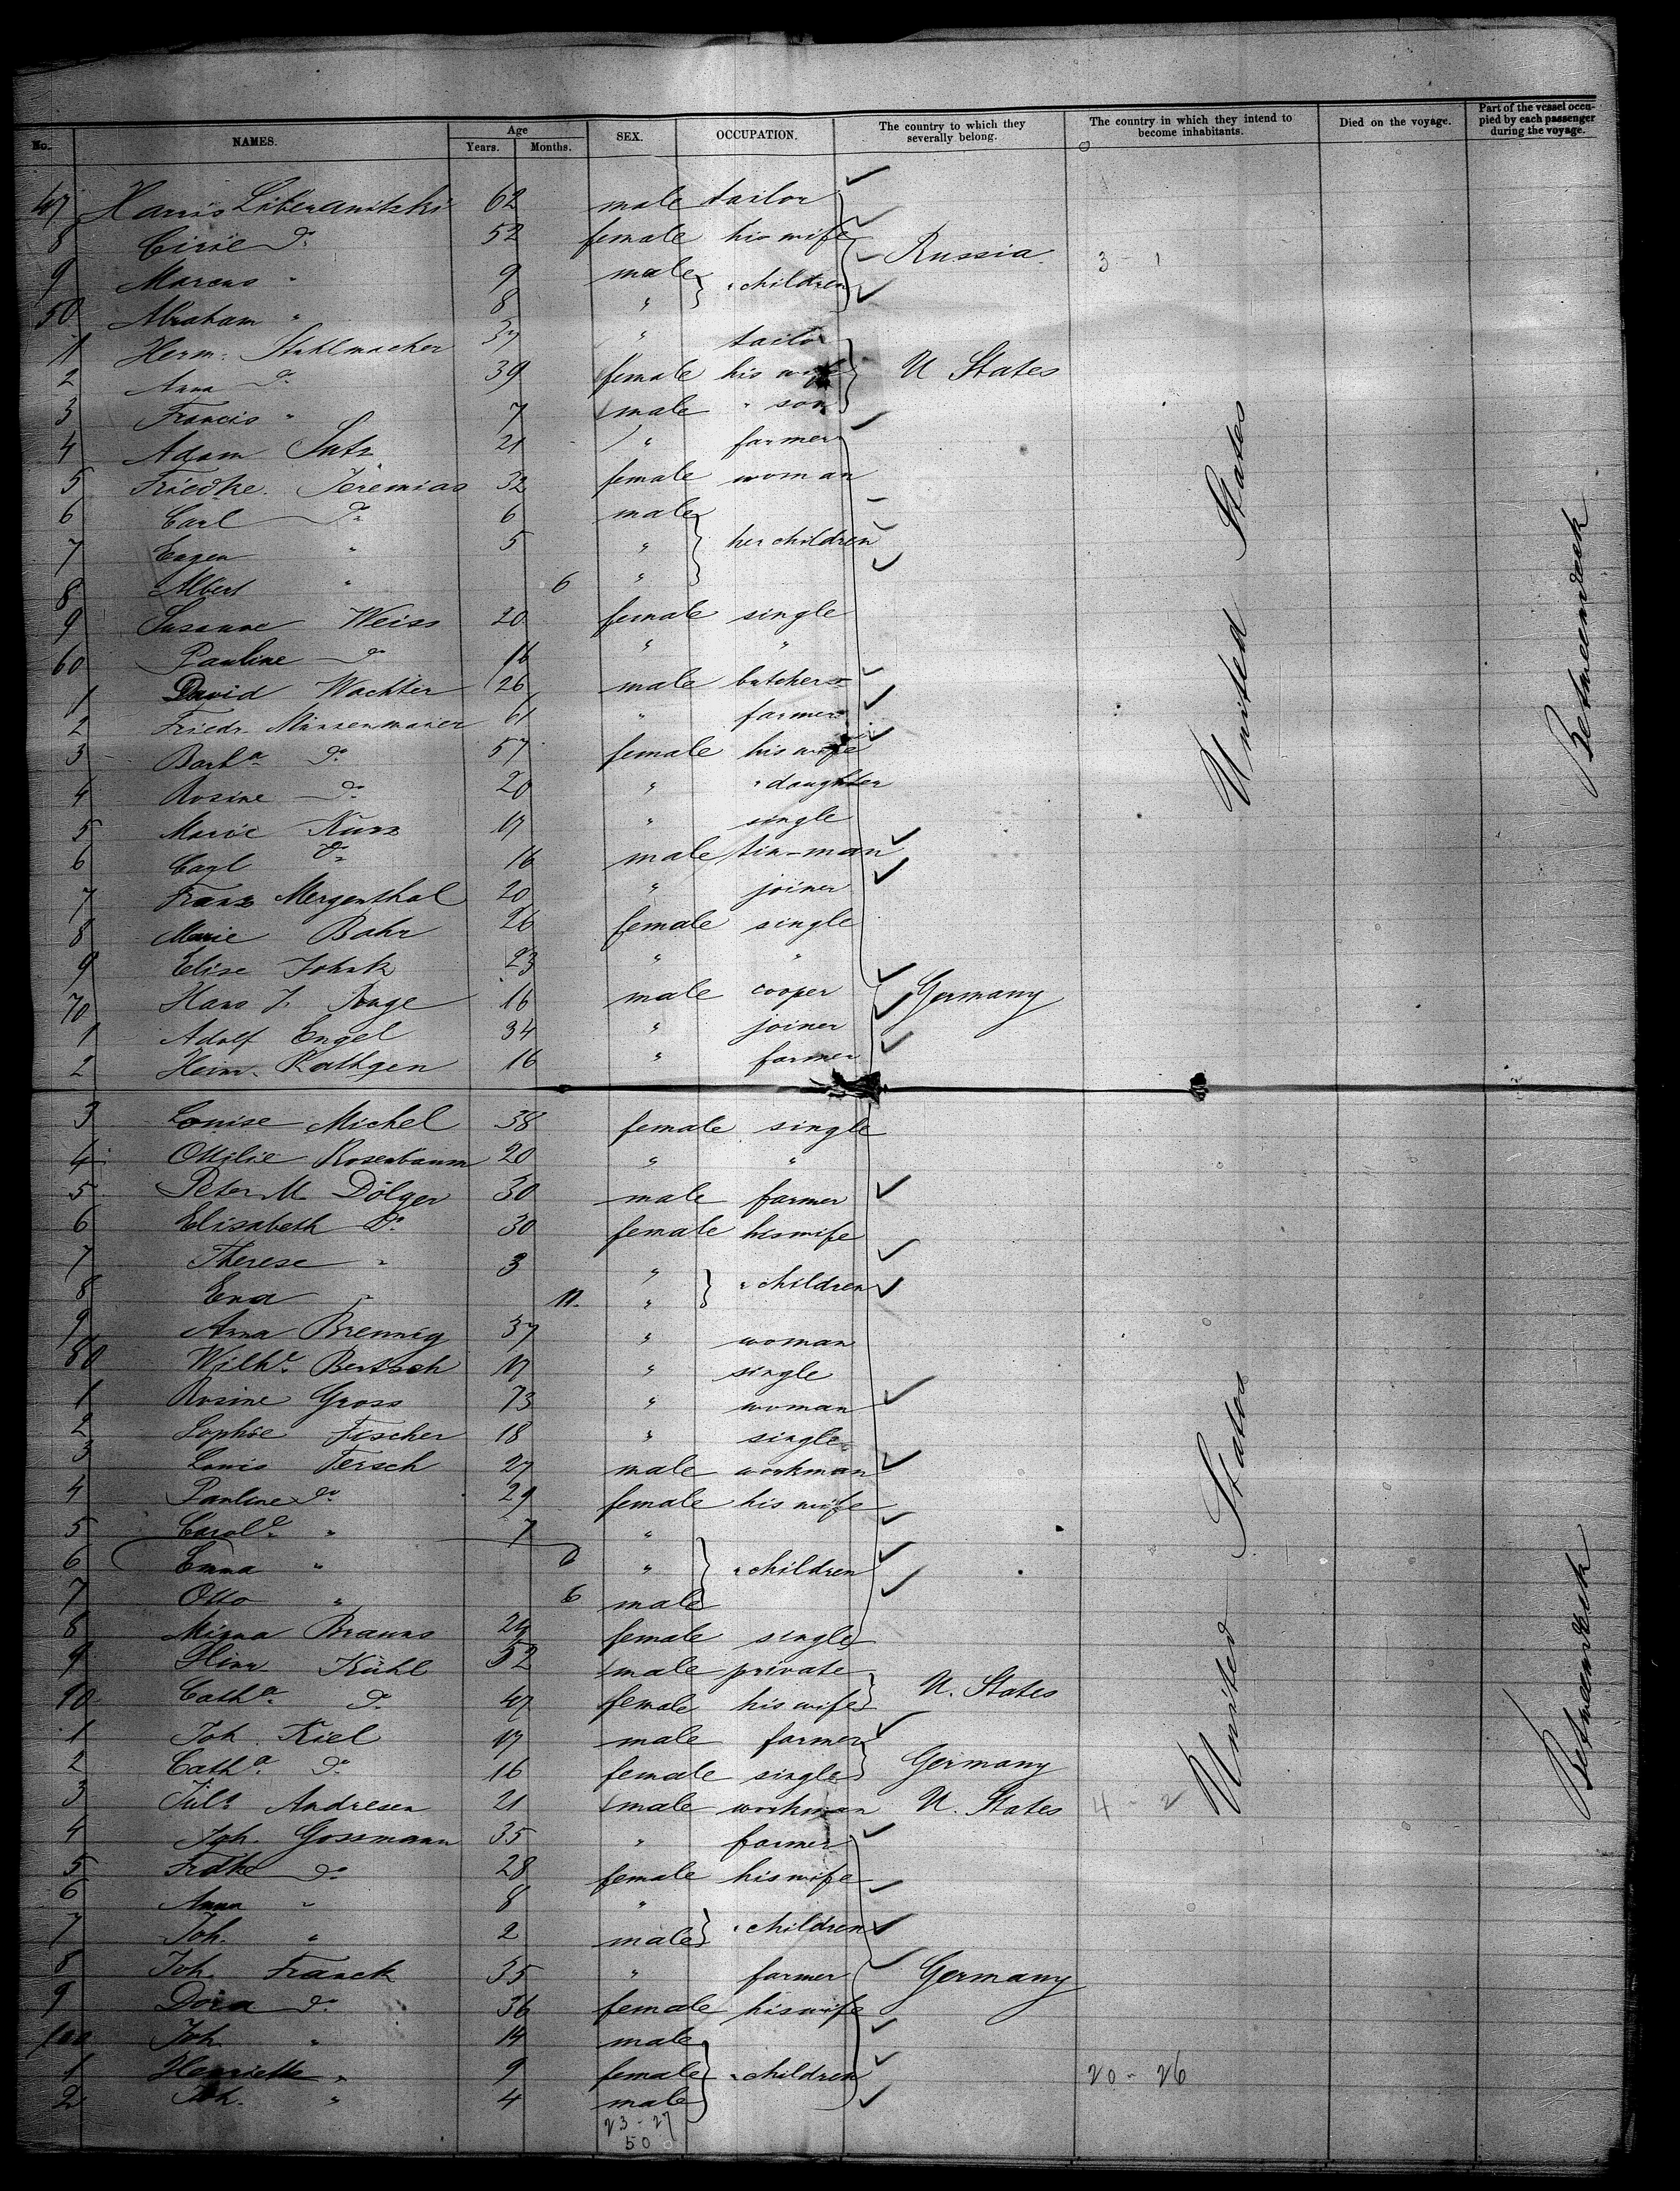 No. NAMES. Age Years. Months. SEX. OCCUPATION. The country to which they severally belong. The country in which they intend to become inhabitants. Died on the voyage. Part of the vessel occupied by each passenger during the voyage.
47 Harris 62 male tailor
8 Do 52 female his wife Russia 3 - 1
9 Marcus " 9 male
" children
50 Abraham " 8 "
1 Herm. Stuhlmacher 37 " tailor
2 Anna Do 39 female his wife U States
3 Francis " 7 male " son
4 Adam 21 " farmer
5 Friedke. Jeremias 32 female woman
6 Carl Do 6 male
7 Eugen " 5 " her children
8 Albert " 6 "
9 Susanne Weiss 20 female single
60 Pauline Do 16 " "
1 David Wachter 26 male butcher
2 Friedr. 61 " farmer
3 Barba Do 57 female his wife
4 Rosine Do 20 " " daughter
5 Marie Kurz 17 " single
6 Carl Do 16 male tin-man
7 Franz Mergenthal 20 " joiner
8 Marie Bahr 26 female single
9 Elise 23 " "
70 Hans J. 16 male cooper Germany
1 Adolf Engel 34 " joiner
2 Heinr. Rathgen 16 " farmer
United States
Betweendeck
3 Louise Michel 38 female single
4 Ottilie Rosenbaum 20 " "
5 Peter M Dölger 30 male farmer
6 Elisabeth Do 30 female his wife
7 Therese " 3 "
" children
8 Eva " 11. "
9 Anna Brennig 37 " woman
80 Wilhe. Bertsch 17 " single
1 Rosine Gross 73 " woman
2 Sophie Fischer 18 " single
3 Louis Fersch 27 male workman
4 Pauline Do 29 female his wife
5 Carole " 7 "
6 Emma " 6 " " children
7 Otto " 6 male
8 Minna Brauns 24 female single
9 Hinr Kühl 52 male private
90 Catha. Do 47 female his wife U. States
1 Joh. Kiel 17 male farmer
2 Catha. Do 16 female single Germany
3 Juls Andresen 21 male workman U. States 4 - 2
4 Joh. Gossmann 35 " farmer
5 Frdke Do 28 female his wife
6 Anna " 8 "
7 Joh. " 2 male " children
8 Joh. Franck 35 " farmer Germany
9 Dora Do 36 female his wife
100 Joh. " 14 male
1 Henriette " 9 female " children 20 - 26
2 Joh. " 4 male
23 - 27
50
United States
Betweendeck